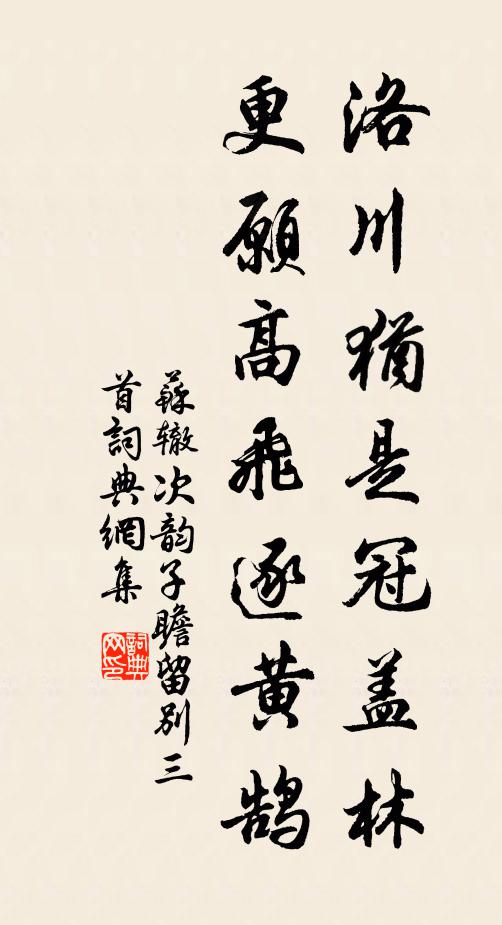 洛川猶是冠盖林
更願高飛逐黄鹄
蘇辙次韵子瞻留别三
首詞典網集
詞典
网印